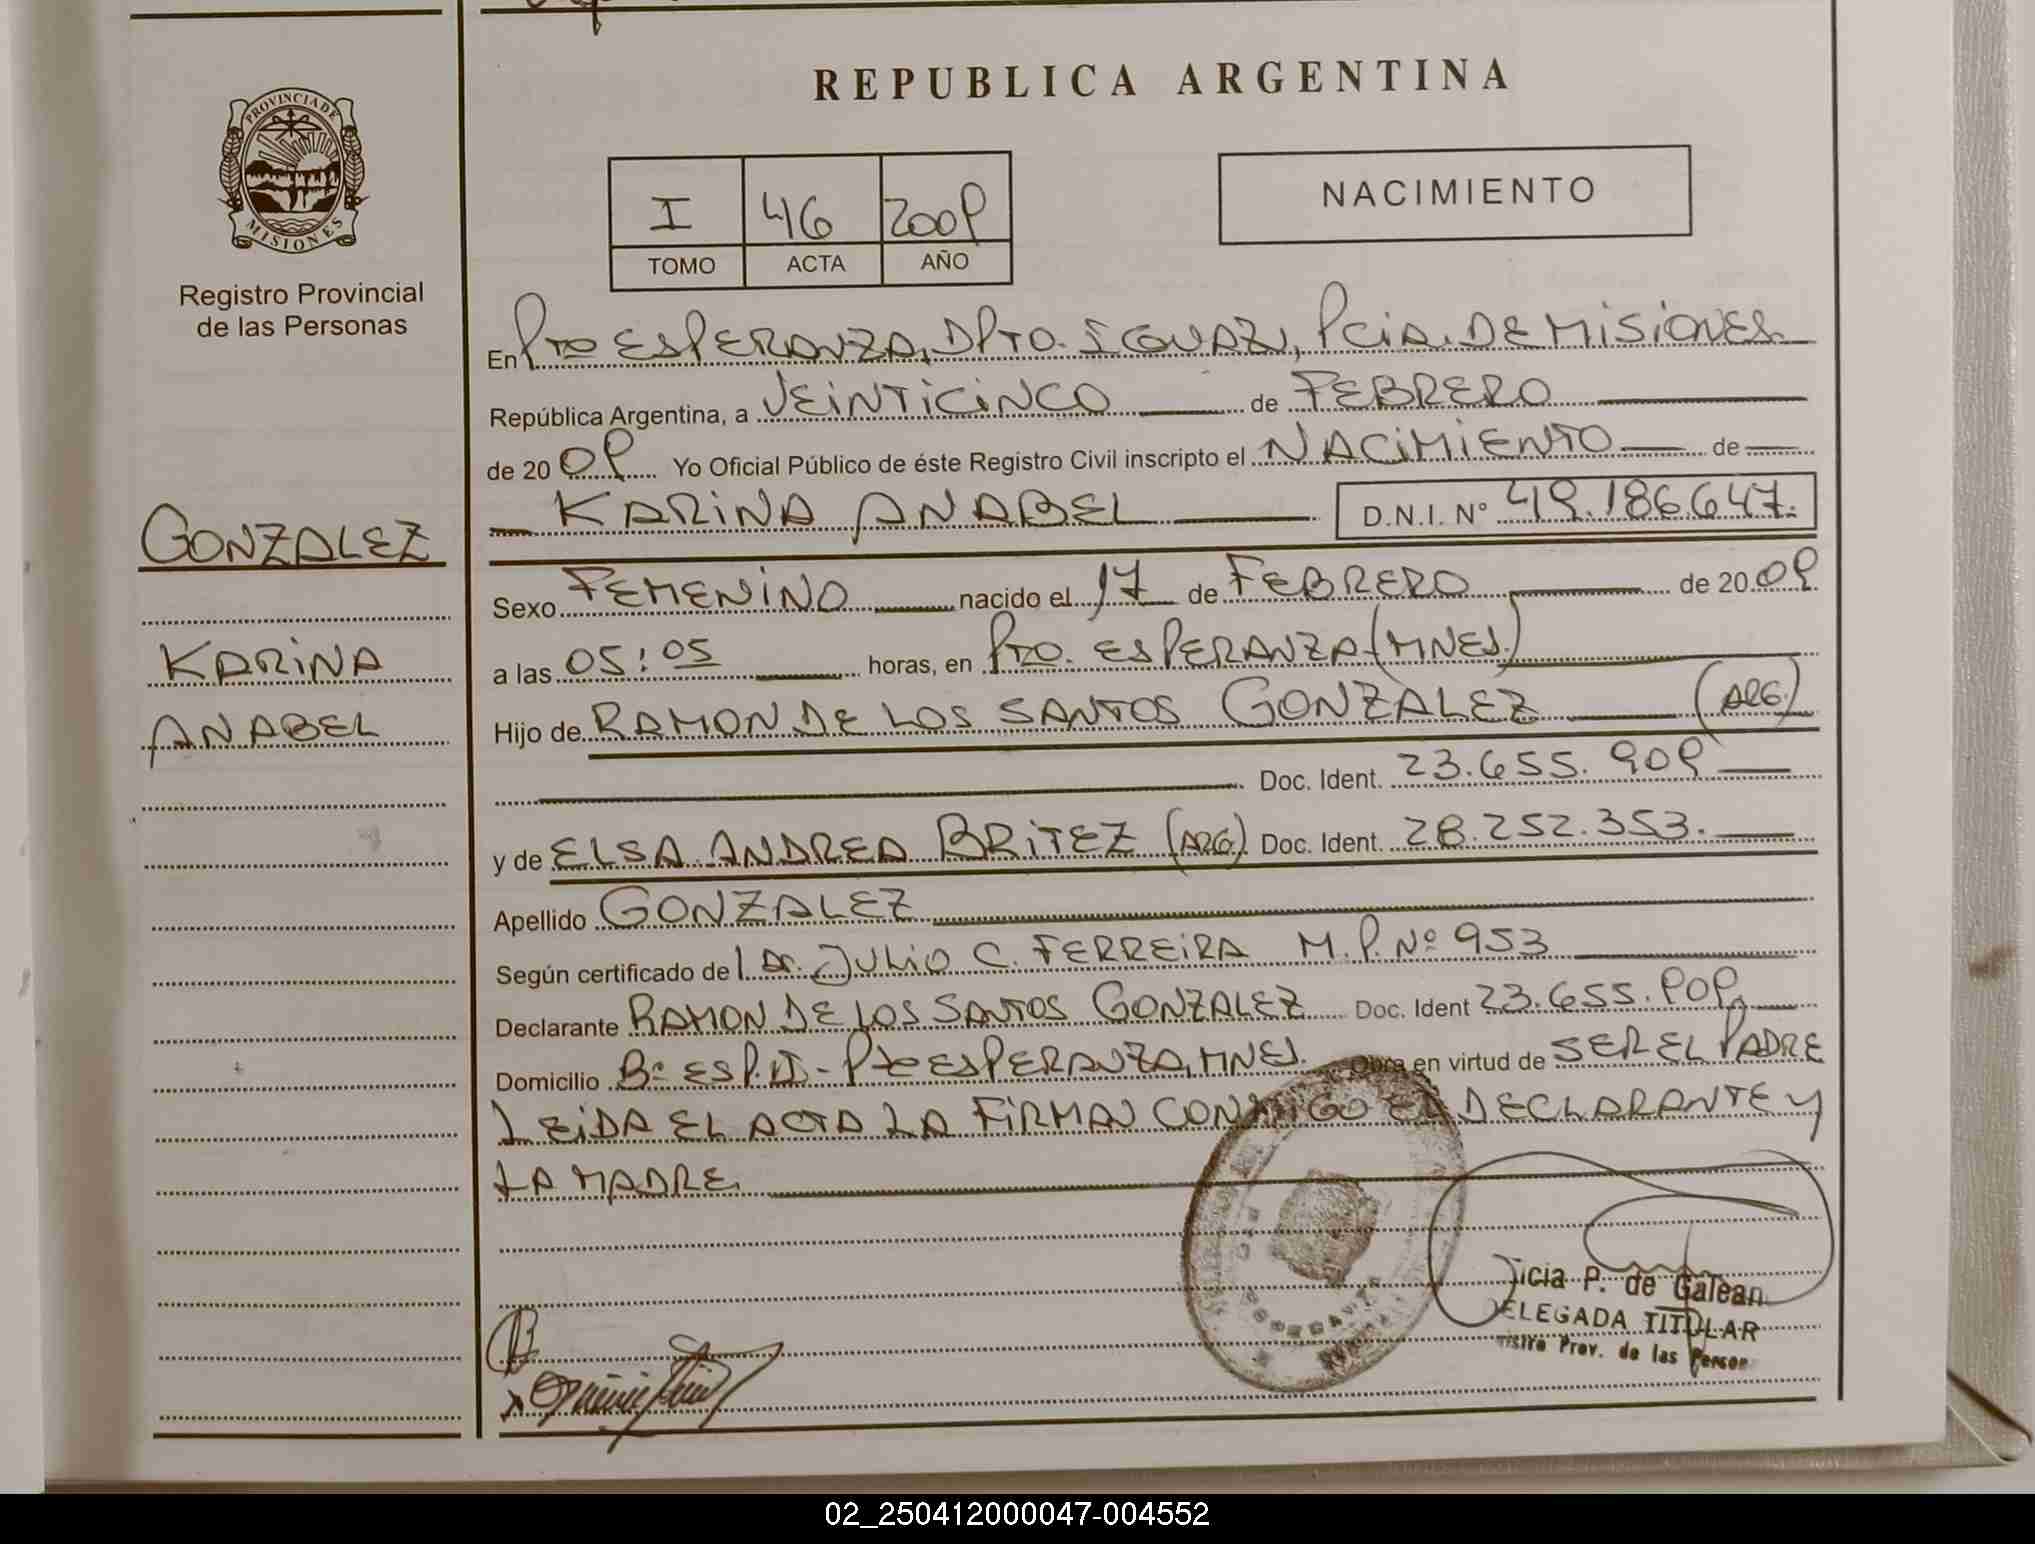 REPUBLICA ARGENTINA
PROVINCIA DE
MISIONES
Registro Provincial
de las Personas
I 46 2009
TOMO ACTA AÑO
NACIMIENTO
GONZALEZ
KARINA
ANABEL
En Pto ESPERANZA, DPTO. IGUAZU, PCIA. DE MISIONES.
República Argentina, a VEINTICINCO de FEBRERO
de 20 09 Yo Oficial Público de éste Registro Civil inscripto el NACIMIENTO de
KARINA ANABEL D.N.I. N° 49.186.647.
Sexo FEMENINO nacido el 17 de FEBRERO de 20 09
a las 05:05 horas, en Pto. ESPERANZA (MNES.)
Hijo de RAMON DE LOS SANTOS GONZALEZ (ARG.)
Doc. Ident. 23.655.909
y de ELSA ANDREA BRITEZ (ARG.) Doc. Ident. 28.252.353.
Apellido GONZALEZ
Según certificado del Dr. JULIO C. FERREIRA M.P. Nº 953
Declarante RAMON DE LOS SANTOS GONZALEZ Doc. Ident 23.655.909
Domicilio Bº ESP. II - Pto ESPERANZA, MNES. Obra en virtud de SER EL PADRE
LEIDA EL ACTA LA FIRMAN CONMIGO EL DECLARANTE Y
LA MADRE.
icia P. de Galean
DELEGADA TITULAR
istro Prov. de las Person
02_250412000047-004552